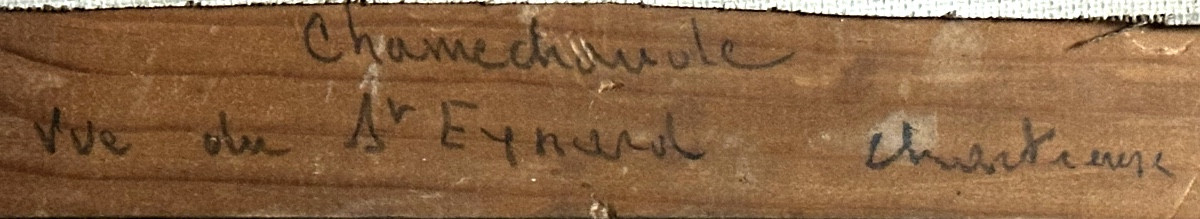 Chamechaude
Vue du St Eynard Chartreuse